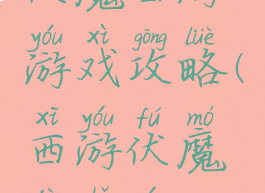 yóu xì gōng lüè
游戏攻略(
xī yóu fú mó
西游伏魔